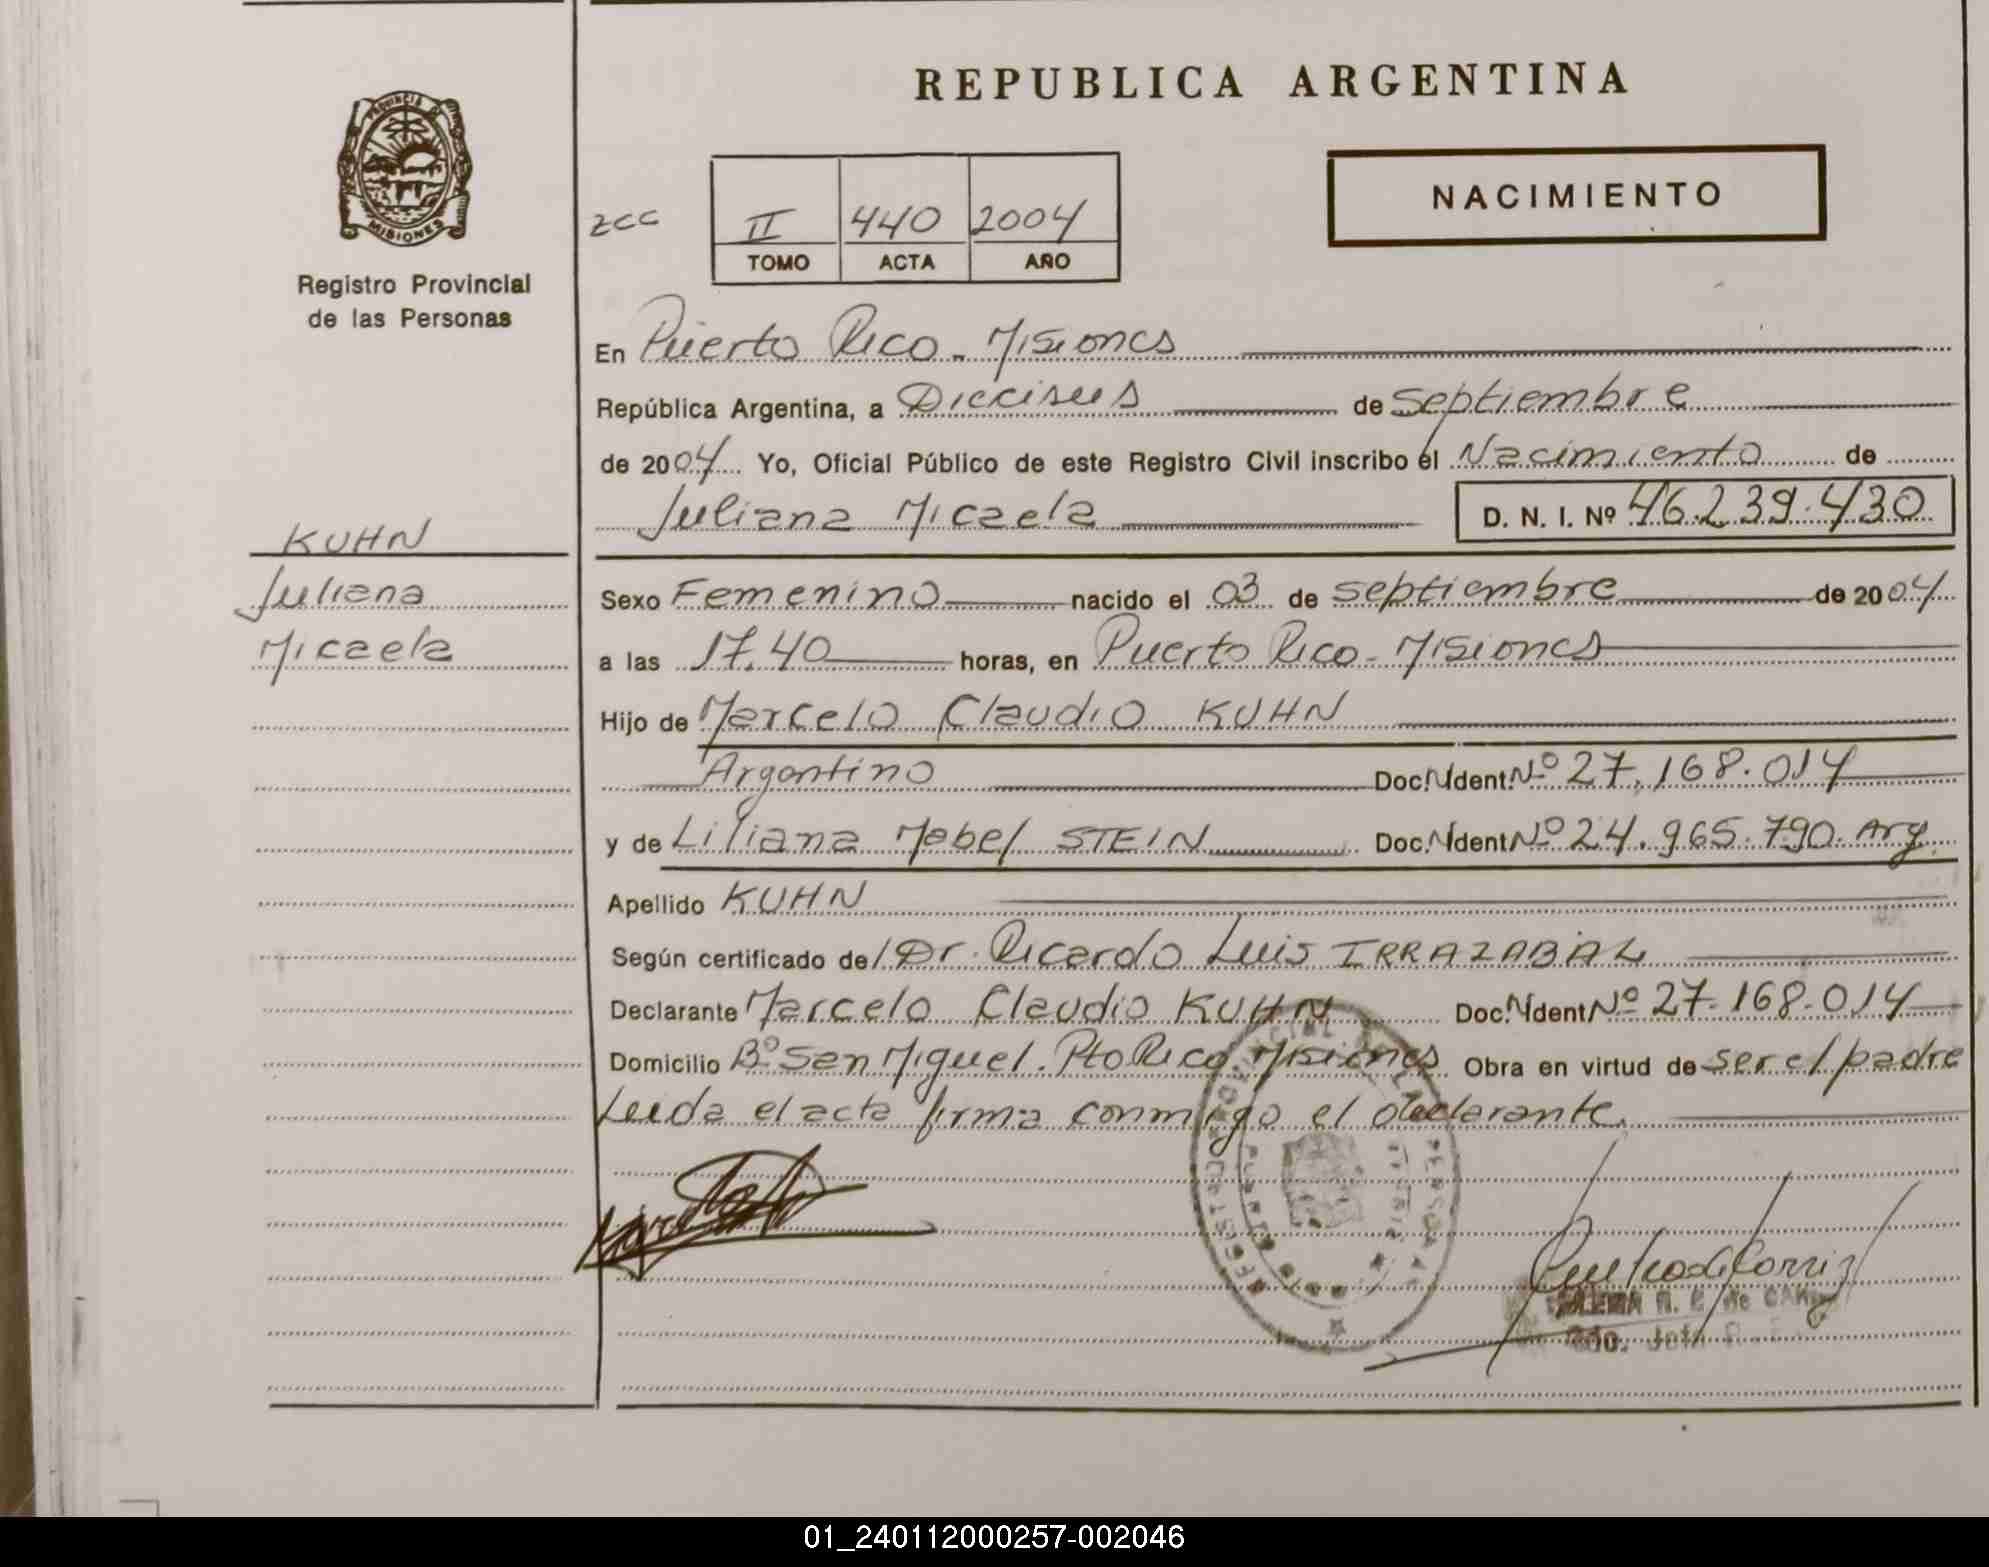 REPUBLICA ARGENTINA
PROVINCIA DE
MISIONES
Registro Provincial
de las Personas
NACIMIENTO
zcc
II 440 2004
TOMO ACTA AÑO
En Puerto Rico - Misiones
República Argentina, a Dieciseis de Septiembre
de 2004 Yo, Oficial Público de este Registro Civil inscribo el Nacimiento de
Juliana Micaela D. N. I. Nº 46.239.430
KUHN
Juliana
Micaela
Sexo Femenino nacido el 03 de Septiembre de 2004
a las 17.40 horas, en Puerto Rico - Misiones
Hijo de Marcelo Claudio KUHN
Argentino Doc. Nident. Nº 27.168.014
y de Liliana Mabel STEIN Doc. Nident Nº 24.965.790. Arg.
Apellido KUHN
Según certificado del Dr. Ricardo Luis IRRAZABAL
Declarante Marcelo Claudio KUHN Doc. Nident Nº 27.168.014
Domicilio Bº San Miguel. Pto Rico Misiones Obra en virtud de ser el padre
Leida el acta firma conmigo el declarante.
01_240112000257-002046